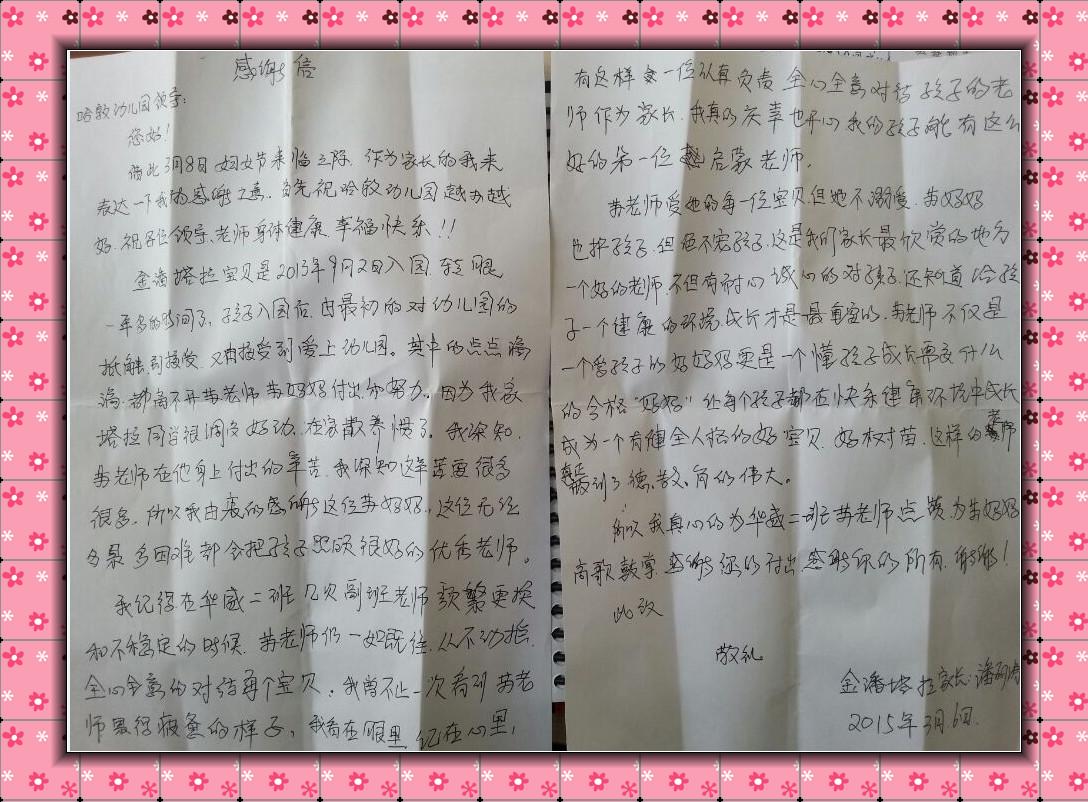 感谢信
哈敦幼儿园领导:
您好!
借此3月8日妇女节来临之际.作为家长的我来
表达一下我的感谢之意.首先祝哈敦幼儿园越办越
好.祝各位领导.老师身体健康.幸福快乐!!
金潘塔拉宝贝是2013年9月2日入园.转眼
一年多的时间了.孩子入园后.由最初的对幼儿园的
抵触.到接受.又由接受到爱上幼儿园。其中的点点滴
滴.都离不开苗老师苗妈妈付出和努力.因为我家
塔拉同学很调皮好动.在家散养惯了.我深知.
苗老师在他身上付出的辛苦.我深知这辛苦要很多
很多.所以我由衷的感谢这位苗妈妈.这位无论
多累多困难都会把孩子照顾很好的优秀老师。
我记得在华威二班几次副班老师频繁更换
和不稳定的时候.苗老师仍一如既往.从不动摇.
全心全意的对待每个宝贝.我曾不止一次看到苗老
师累得疲惫的样子,我看在眼里.记在心里,
有这样一位认真负责全心全意对待孩子的老
师作为家长.我真的庆幸也开心我的孩子能有这么
好的第一位启蒙老师.
苗老师爱她的每一位宝贝.但她不溺爱.苗妈妈
也护孩子.但也不宠孩子.这是我们家长最欣赏的地方
一个好的老师.不但有耐心诚心的对孩子.还知道给孩
子一个健康的环境.成长才是最重要的.苗老师不仅是
一个爱孩子的好妈妈更是一个懂孩子成长需要什么
的合格"妈妈"让每个孩子都在快乐健康环境中成长
成为一个有健全人格的好宝贝.好树苗.这样的老师
真正做到了德、教、育的伟大。
所以我真心的为华威二班苗老师点赞.为苗妈妈
高歌鼓掌.感谢您的付出.感谢你的所有.谢谢!
此致
敬礼
金潘塔拉家长:潘
2015年3月6日.